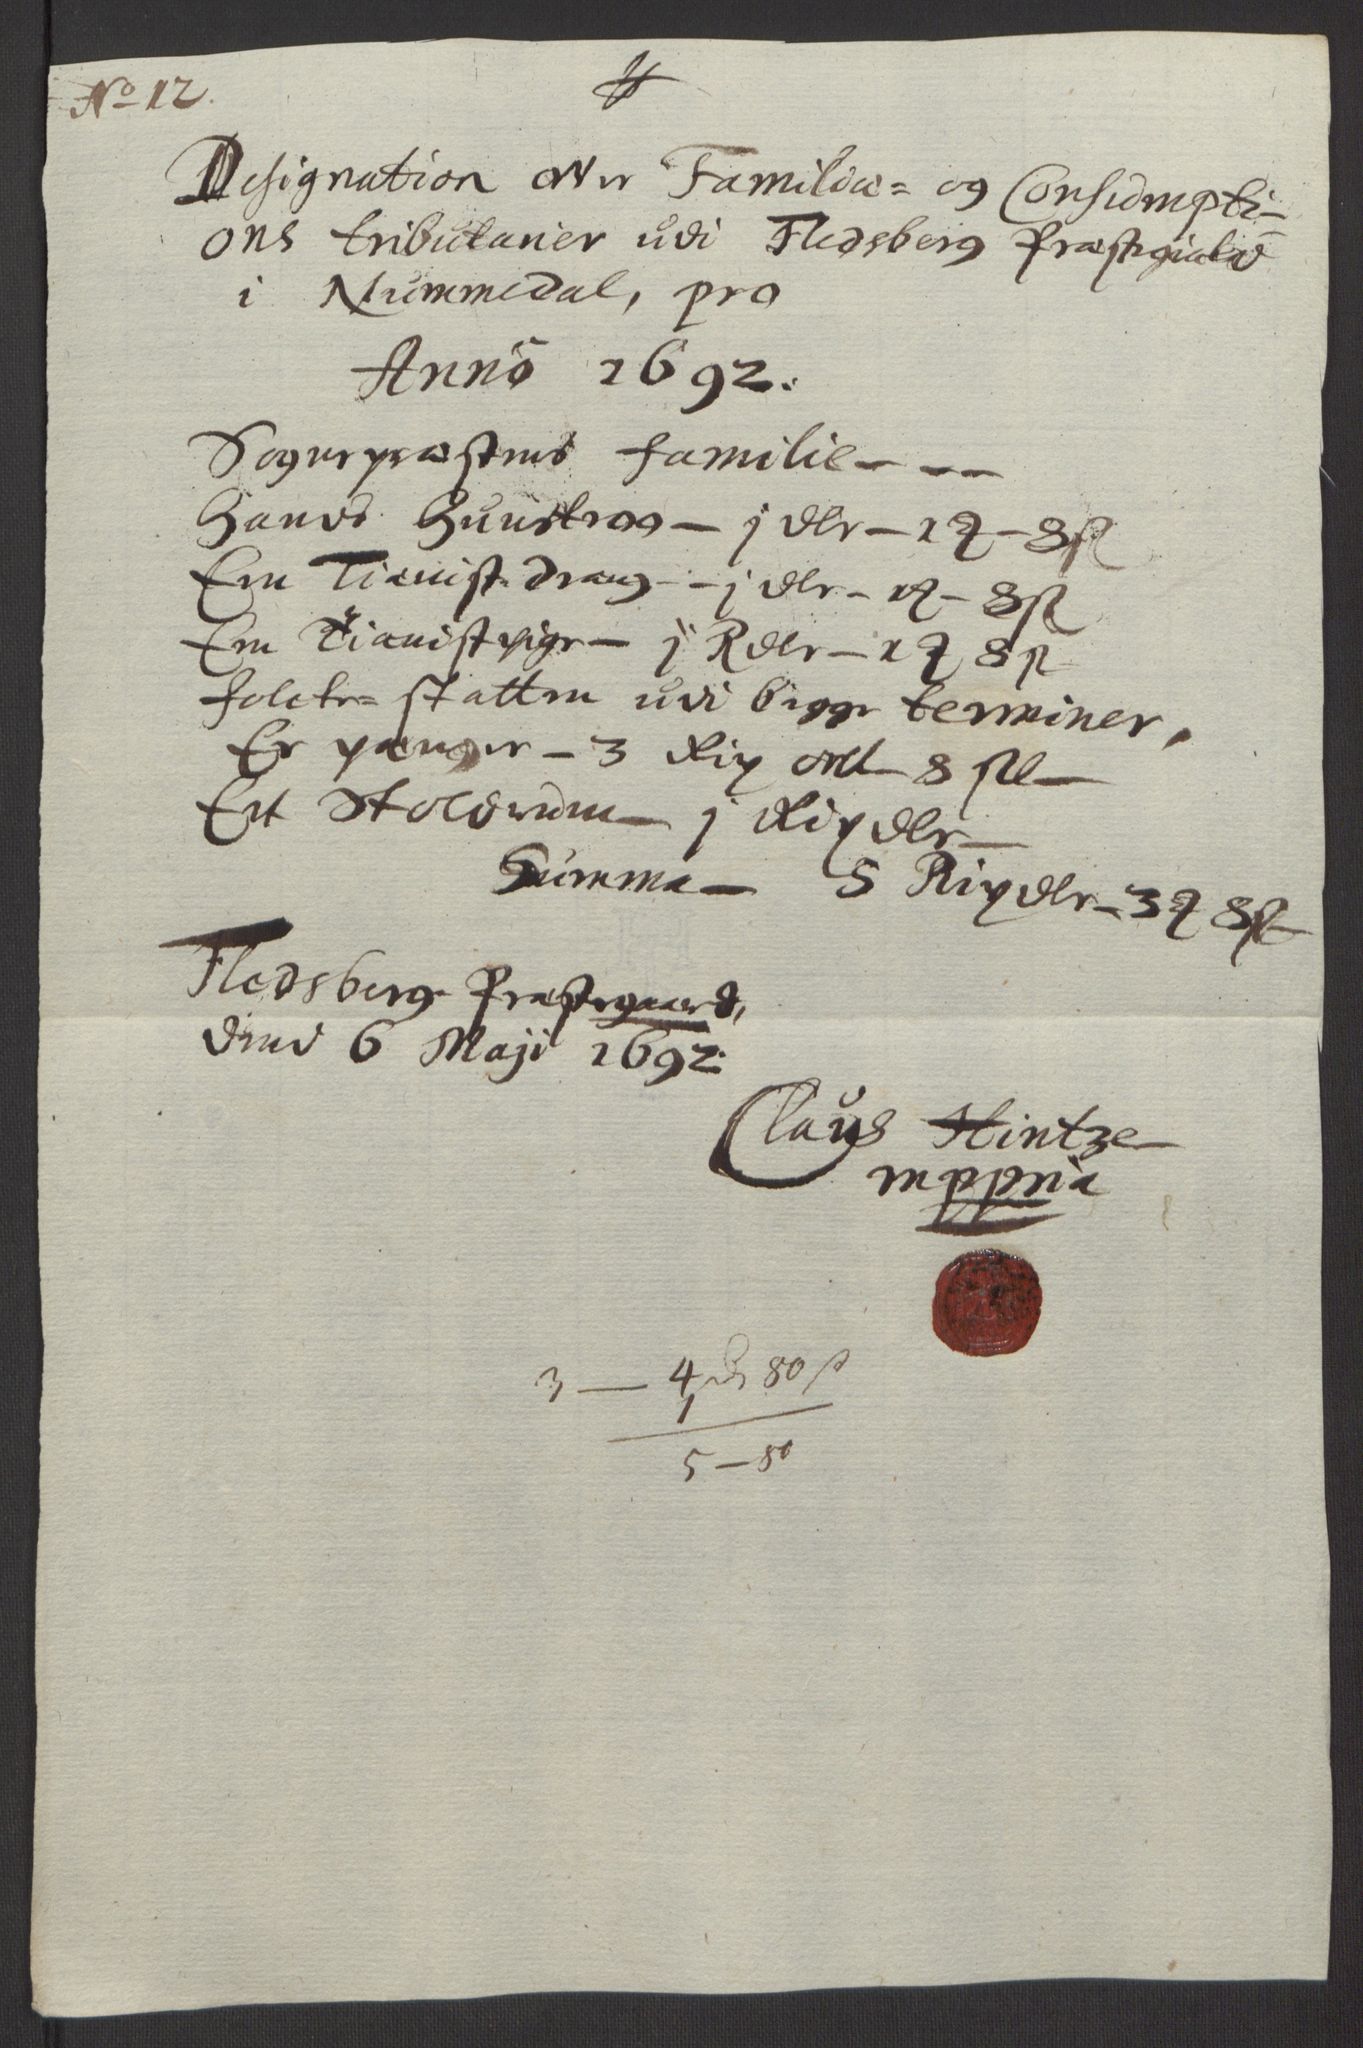 No 12.
Designation over Familiæ= og Consumpti-
ons tributarier udi Fledsberg Præstegield
i Nummedal, pro
Anno 1692.
Sognepræstens familie
Hands Huustroe j dlr 1 ꝗ 8 ß
Een Tieniste dreng j dlr 1 ꝗ 8 ß
Een Tienistepige j Rdlr 1 ꝗ 8 ß
folcke= skatten udi begge terminer,
Er penger 3 Rix ort 8 ßl
Ett Stolerum j Rixdlr
Summa 5 Rixdlr 3 ꝗ 8 ß
Fledsberg Præstegaard,
dend 6 Maji 1692.
Claus Hintze
mppria
3 — 4 dr 80 ß
1
5 — 80